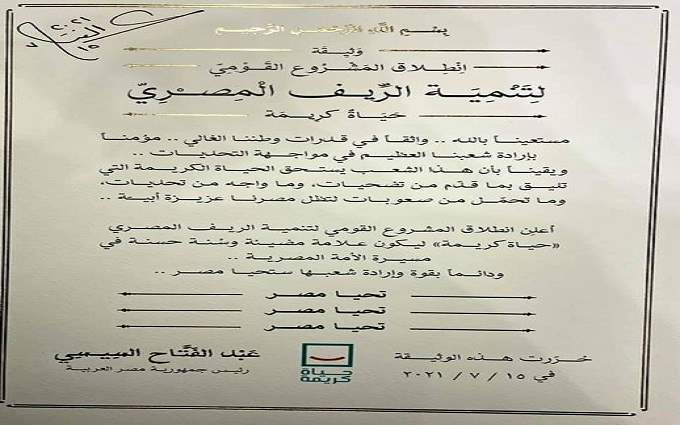 بسم الله الرحمن الرحيم
وثيقة
انطلاق المشروع القومي
لتنمية الريف المصري
حياة كريمة
مستعيناً بالله .. واثقاً في قدرات وطننا الغالي .. مؤمناً
بإرادة شعبنا العظيم في مواجهة التحديات ..
ويقيناً بأن هذا الشعب يستحق الحياة الكريمة التي
تليق بما قدم من تضحيات، وما واجه من تحديات،
وما تحمّل من صعوبات لتظل مصرنا عزيزة أبية ..
أعلن انطلاق المشروع القومي لتنمية الريف المصري
«حياة كريمة» ليكون علامة مضيئة وسُنة حسنة في
مسيرة الأمة المصرية ..
ودائماً بقوة وإرادة شعبها ستحيا مصر ..
تحيا مصر
تحيا مصر
تحيا مصر
حُررت هذه الوثيقة
في ١٥ / ٧ / ٢٠٢١
حياة
كريمة
عبد الفتاح السيسي
رئيس جمهورية مصر العربية